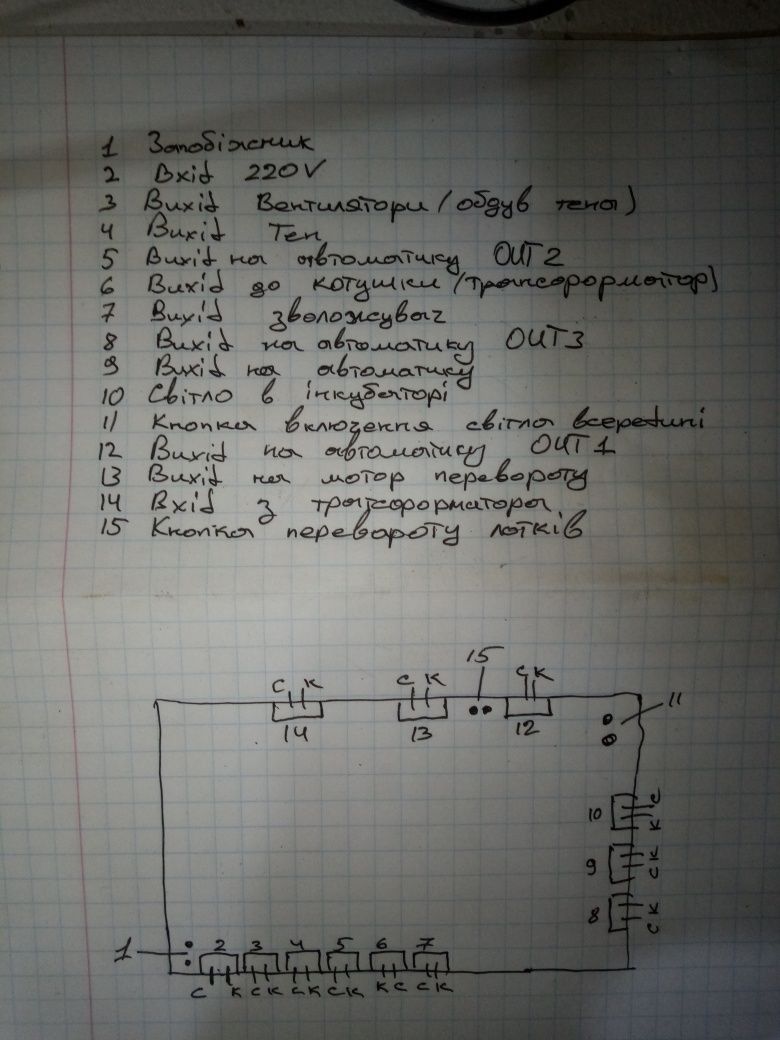 1 Запобіжник
2 Вхід 220V
3 Вихід Вентилятори (обдув тена)
4 Вихід Тен
5 Вихід на автоматику OUT2
6 Вихід до котушки (трансформатор)
7 Вихід зволожувач
8 Вихід на автоматику OUT3
9 Вихід на автоматику
10 Світло в інкубаторі
11 Кнопка включення світла всередині
12 Вихід на автоматику OUT1
13 Вихід на мотор перевороту
14 Вхід з трансформатора
15 Кнопка перевороту лотків
15
С К С К С К
11
14 13 12
10 С К
9 К С
8 К С
1 2 3 4 5 6 7
С К С К С К С К К С С К